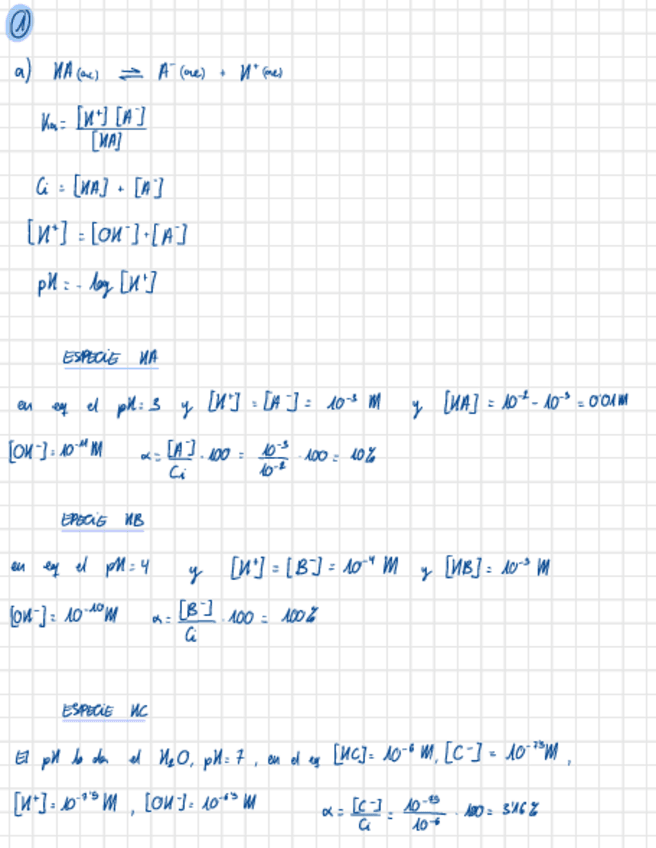 1
a) HA (ac) ⇌ A⁻ (ac) + H⁺ (ac)
Ka = [H⁺] [A⁻] / [HA]
Ci = [HA] + [A⁻]
[H⁺] = [OH⁻] + [A⁻]
pH = - log [H⁺]
ESPECIE HA
en eq el pH = 3 y [H⁺] = [A⁻] = 10⁻³ M y [HA] = 10⁻² - 10⁻³ = 0'01 M
[OH⁻] = 10⁻¹¹ M α = [A⁻] / Ci · 100 = 10⁻³ / 10⁻² · 100 = 10%
EPECIE HB
en eq el pH = 4 y [H⁺] = [B⁻] = 10⁻⁴ M y [HB] = 10⁻³ M
[OH⁻] = 10⁻¹⁰ M α = [B⁻] / Ci · 100 = 100%
ESPECIE HC
El pH lo da el H₂O, pH = 7, en el eq [HC] = 10⁻⁶ M, [C⁻] = 10⁻⁷'⁵ M,
[H⁺] = 10⁻⁷'⁵ M, [OH⁻] = 10⁻⁶'⁵ M α = [C⁻] / Ci = / 10⁻⁶ · 100 = 3'16%